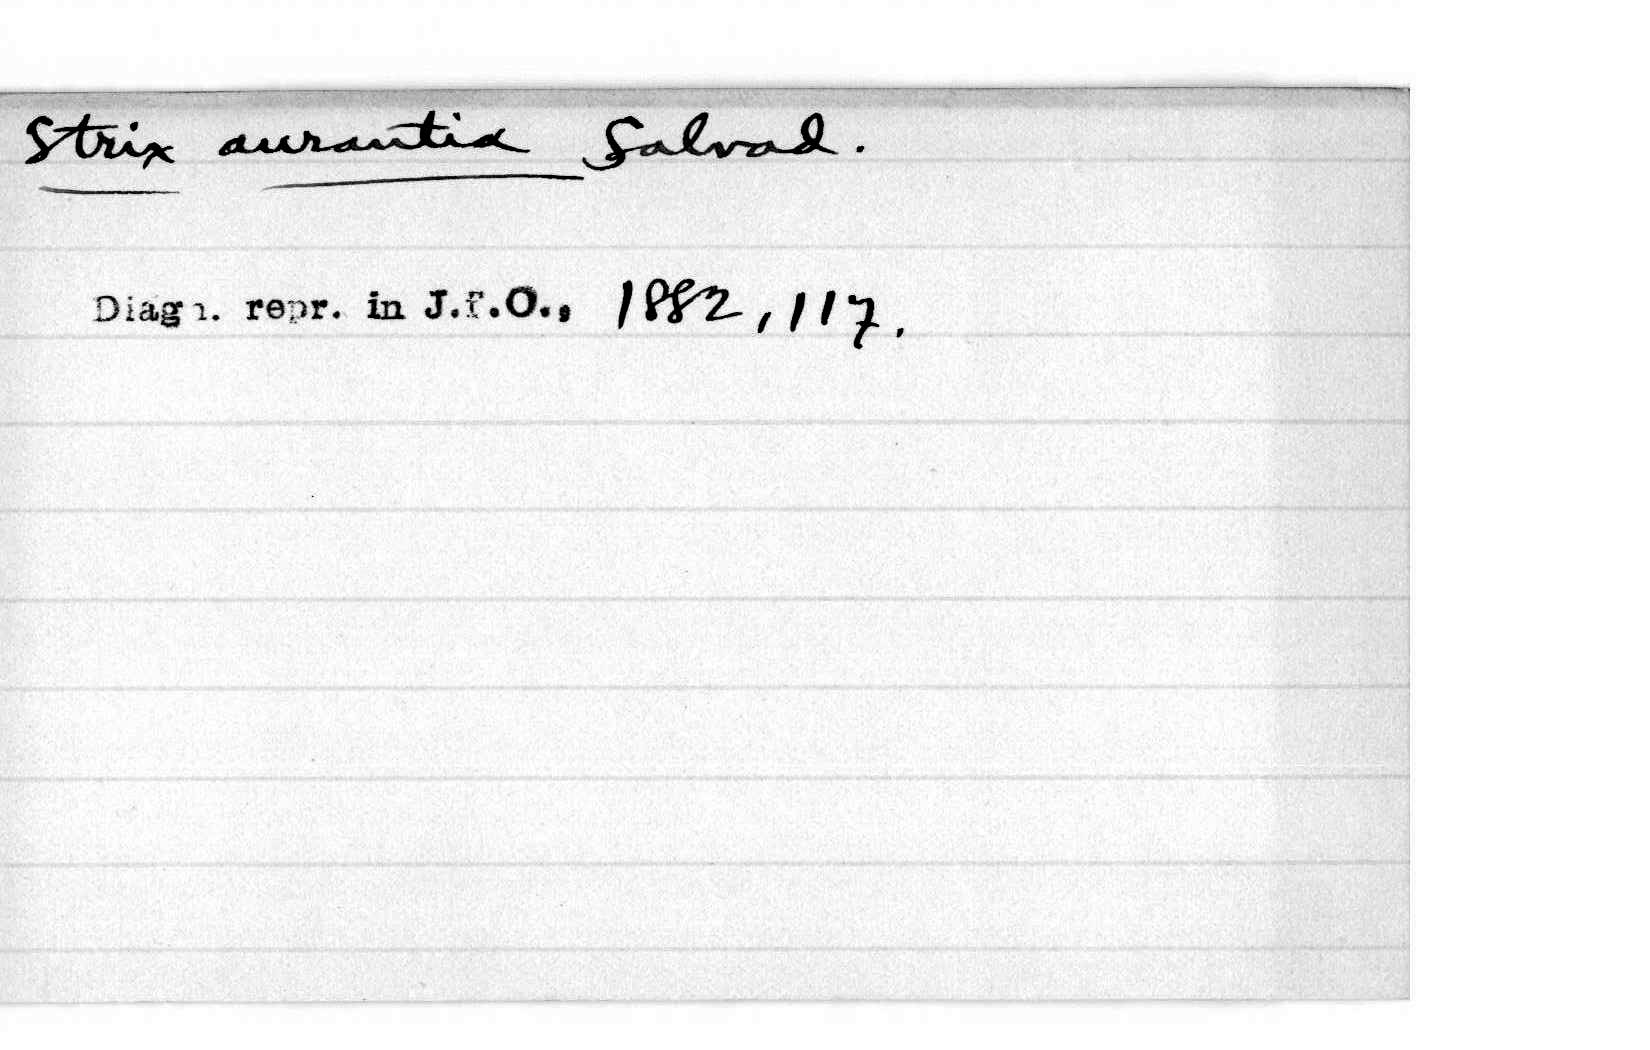 Strix aurantia Salvad.
Diagn. repr. in J.f.O., 1882, 117.